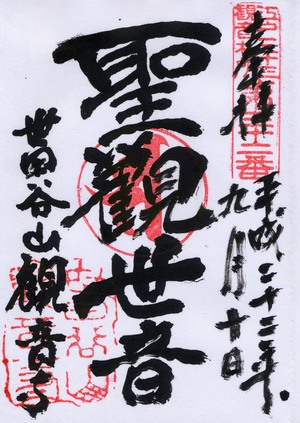 奉拝
平成二十三年
九月十日
聖觀世音
世田谷山観音寺